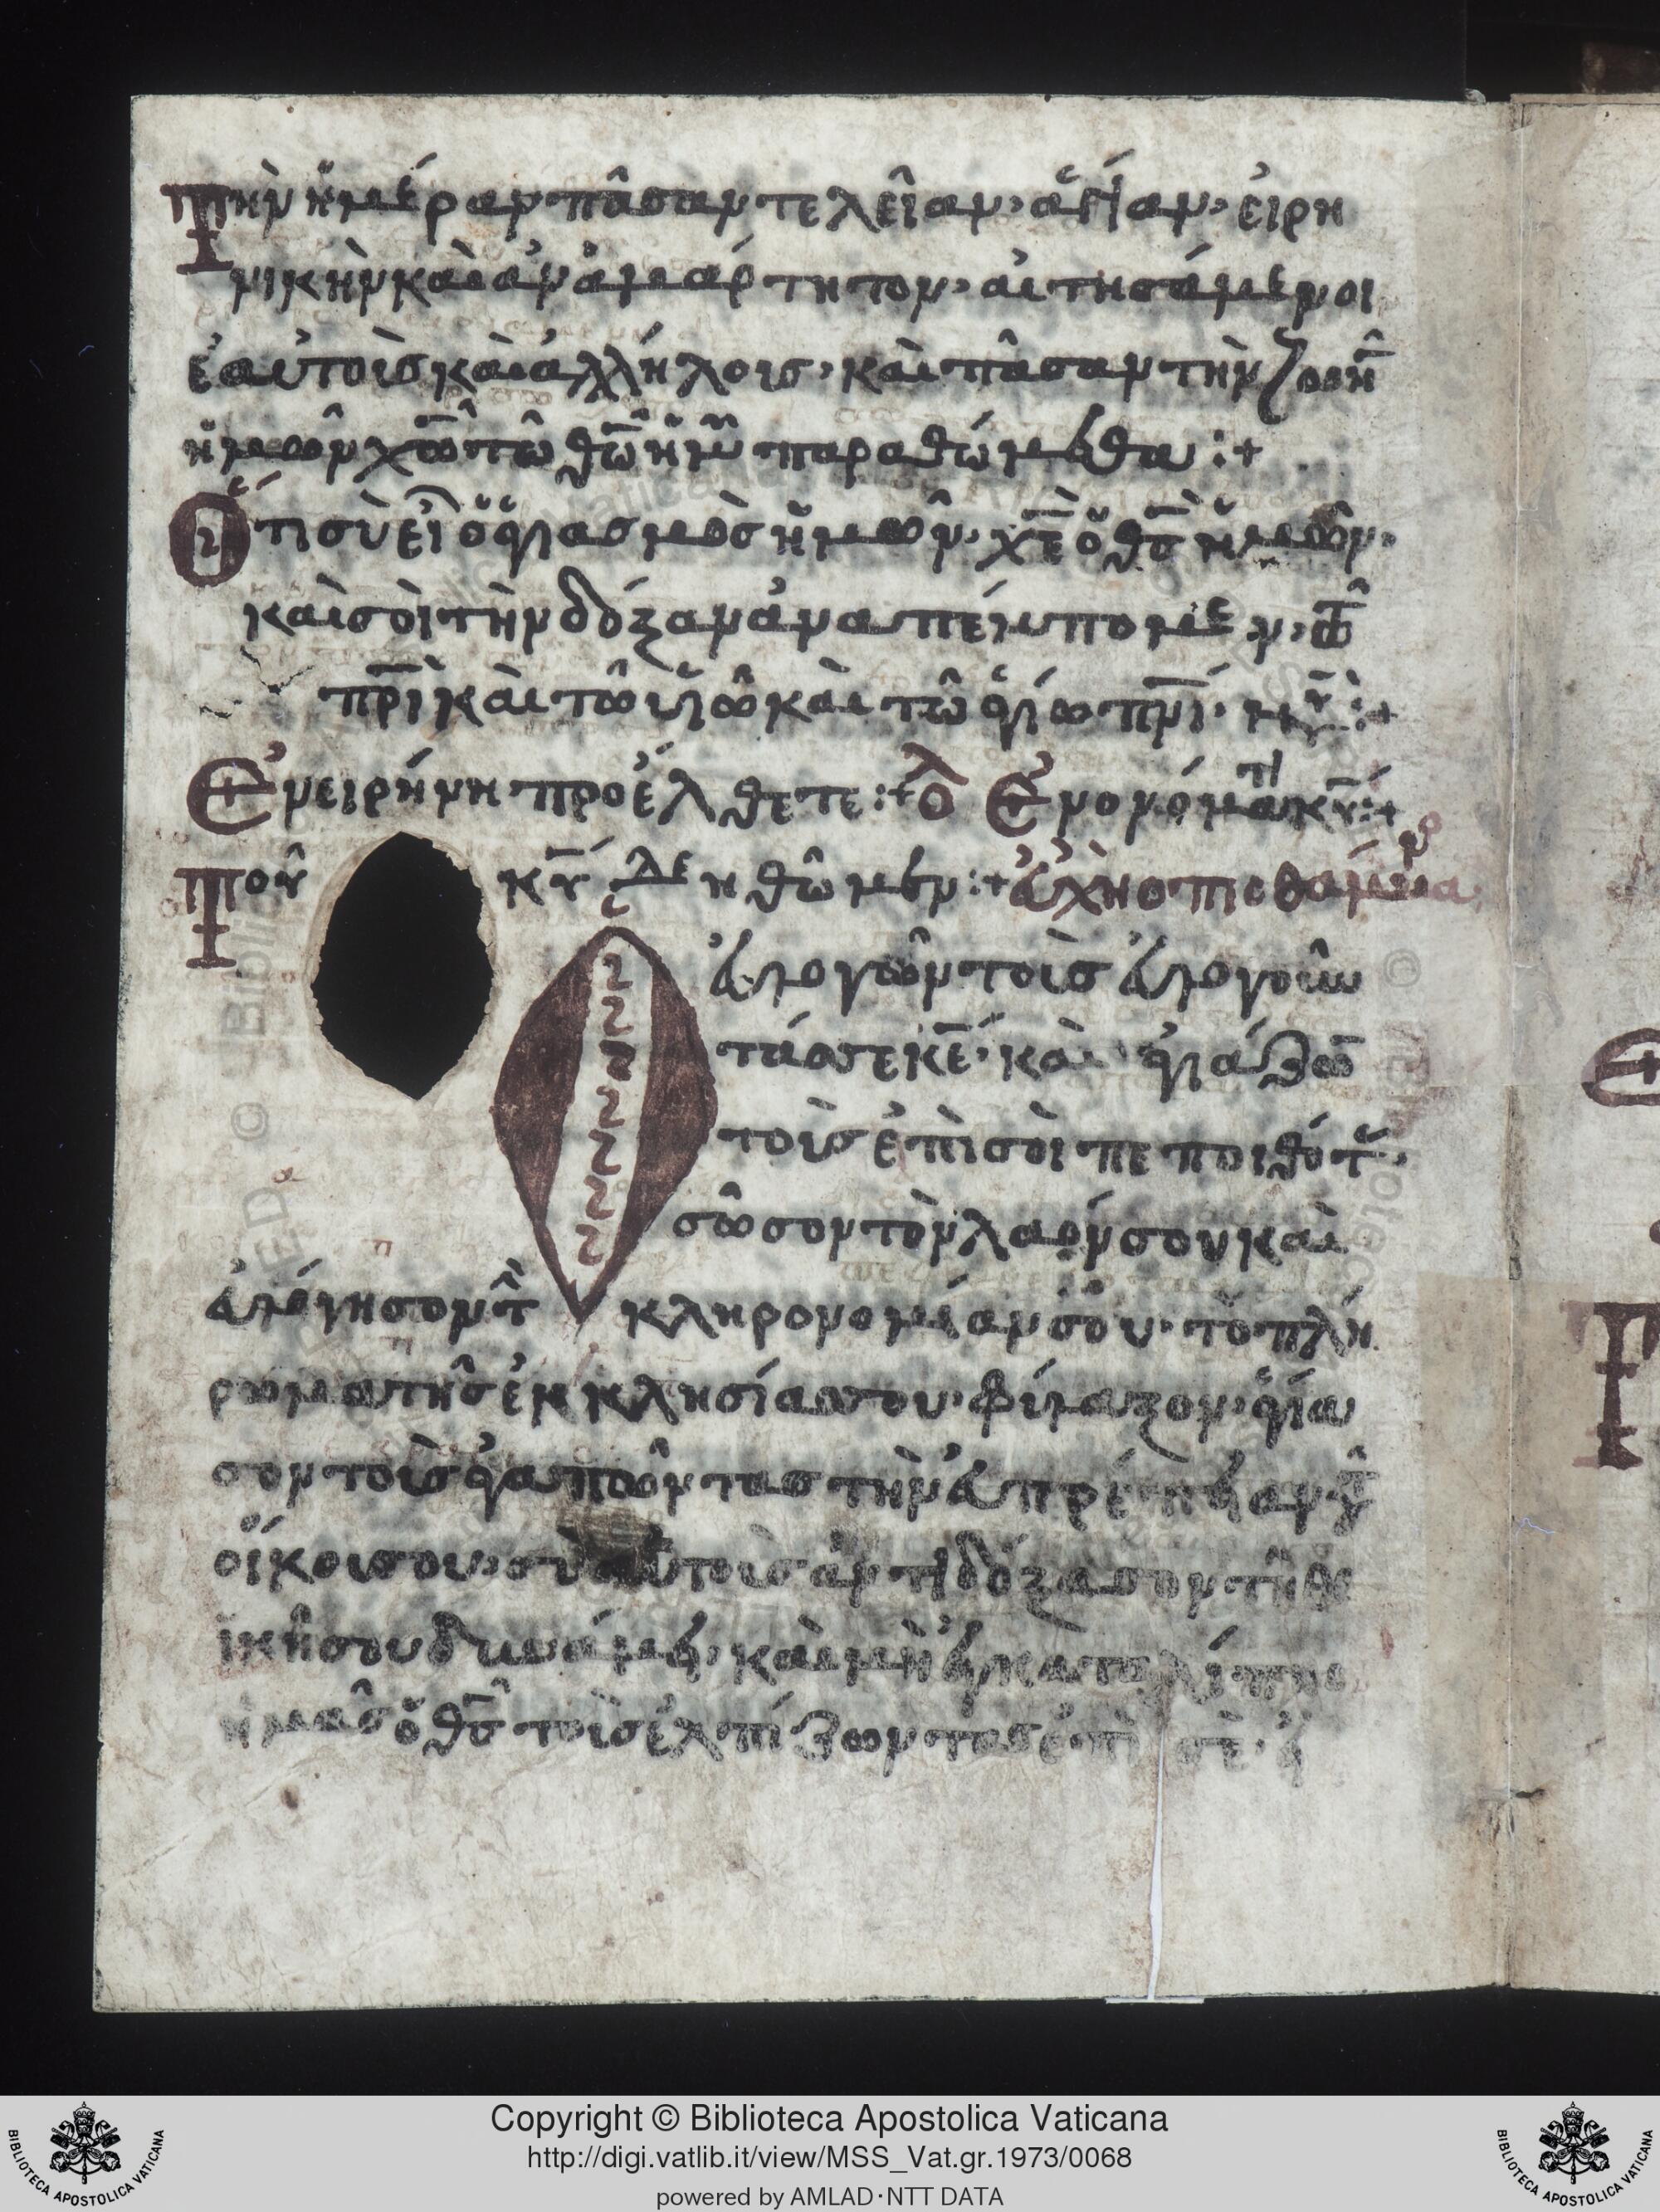 Τὴν ἡμέραν πᾶσαν τελεῖαν· ἁγίαν· εἰρη
νικὴν καὶ ἀναμάρτητον· αἰτησάμενοι
ἑαυτοὶς καὶ ἀλλήλοις· καὶ πᾶσαν τὴν ζωὴ
ἡμῶν χω τῶ θω ἡμ παραθώμεθα :+
Ὅτι σὺ εἶ ὁ ἁγιασμὸς ἡμῶν· χε ὁ θς ἡμῶν·
καὶ σοὶ τὴν δόξαν ἀναπέμπομεν· τῶ
πρι καὶ τῶ υἱῶ καὶ τῶ ἁγίω πνι· νυ :+
Ἐν εἰρήνη προέλθετε :+ ὁ λ Ἐν ονόματι κυ :+
Τοῦ κυ δεηθῶμεν :+ εὐχὴ ὀπισθάμβωνο
Ὁ εὐλογῶν τοὶς εὐλογοῦν
τάς σε κε· καὶ ἁγιάζων
τοὺς ἐπὶ σοὶ πεποιθότ·
σῶσον τὸν λαόν σου καὶ
εὐλόγησον τὴ κληρονομίαν σου· τὸ πλή
ρωμα τῆς ἐκκλησίας σου· φύλαξον· ἁγία
σον τοὺς ἀγαπῶντας τὴν εὐπρέπειαν τοῦ
οἴκου σου· σὺ αὐτοὺς ἀντιδόξασον τῆ θε
ϊκῆ σου δυνάμει· καὶ μὴ ἐγκαταλίπης
ἡμᾶς ὁ θς τοὺς ἐλπίζωντας ἐπὶ σὲ·
Copyright © Biblioteca Apostolica Vaticana
http://digi.vatlib.it/view/MSS_Vat.gr.1973/0068
powered by AMLAD·NTT DATA
BIBLIOTECA APOSTOLICA VATICANA
BIBLIOTECA APOSTOLICA VATICANA